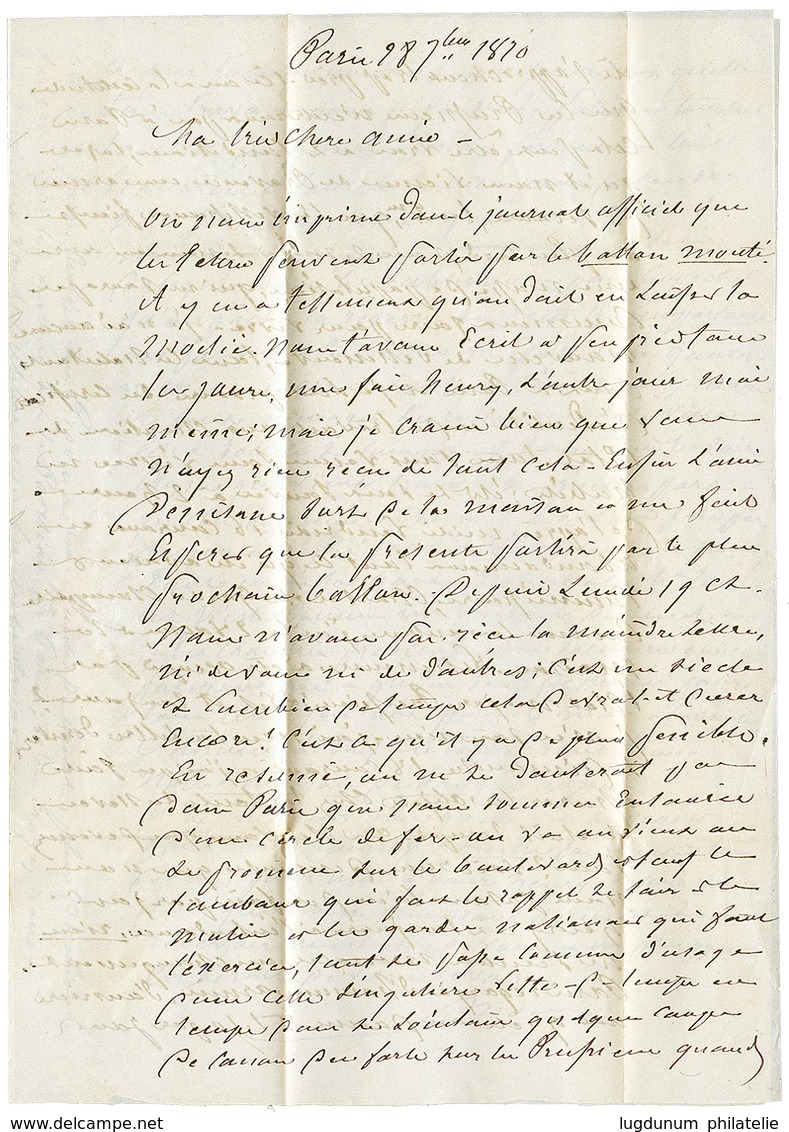 Paris 28 7bre 1870
Ma très chère amie –
On nous imprime dans le journal officiel que
les lettres peuvent partir par le ballon monté.
il y en a tellement qu'on doit en laisser la
moitié. Nous t'avons Ecrit à peu près tous
les jours, une fois Henry, l'autre jour moi
même; mais je crains bien que vous
n'ayez rien reçu de tout cela – Enfin l'ami
part de la maison et me fait
Espérer que la présente partira par le plus
prochain ballon. Depuis Lundi 19 Ct.
Nous n'avons pas reçu la moindre lettre,
ni de vous ni de d'autres; c'est un siècle
et Combien de temps cela devrat-il durer
Encore! C'est ce qu'il y a de plus pénible.
En résumé, on ne se douterait pas
dans Paris que nous sommes Entourés
d'un cercle de fer – on va on vient on
se promène sur le boulevard, et sauf le
tambour qui fait le rappel le soir et le
matin et les gardes nationaux qui font
l'exercice, tout se passe comme d'usage
dans cette singulière ville – De temps en
temps dans le lointain quelques coups
de canon des forts sur les Prussiens quand
lugdunum philatelie
www.delcampe.net